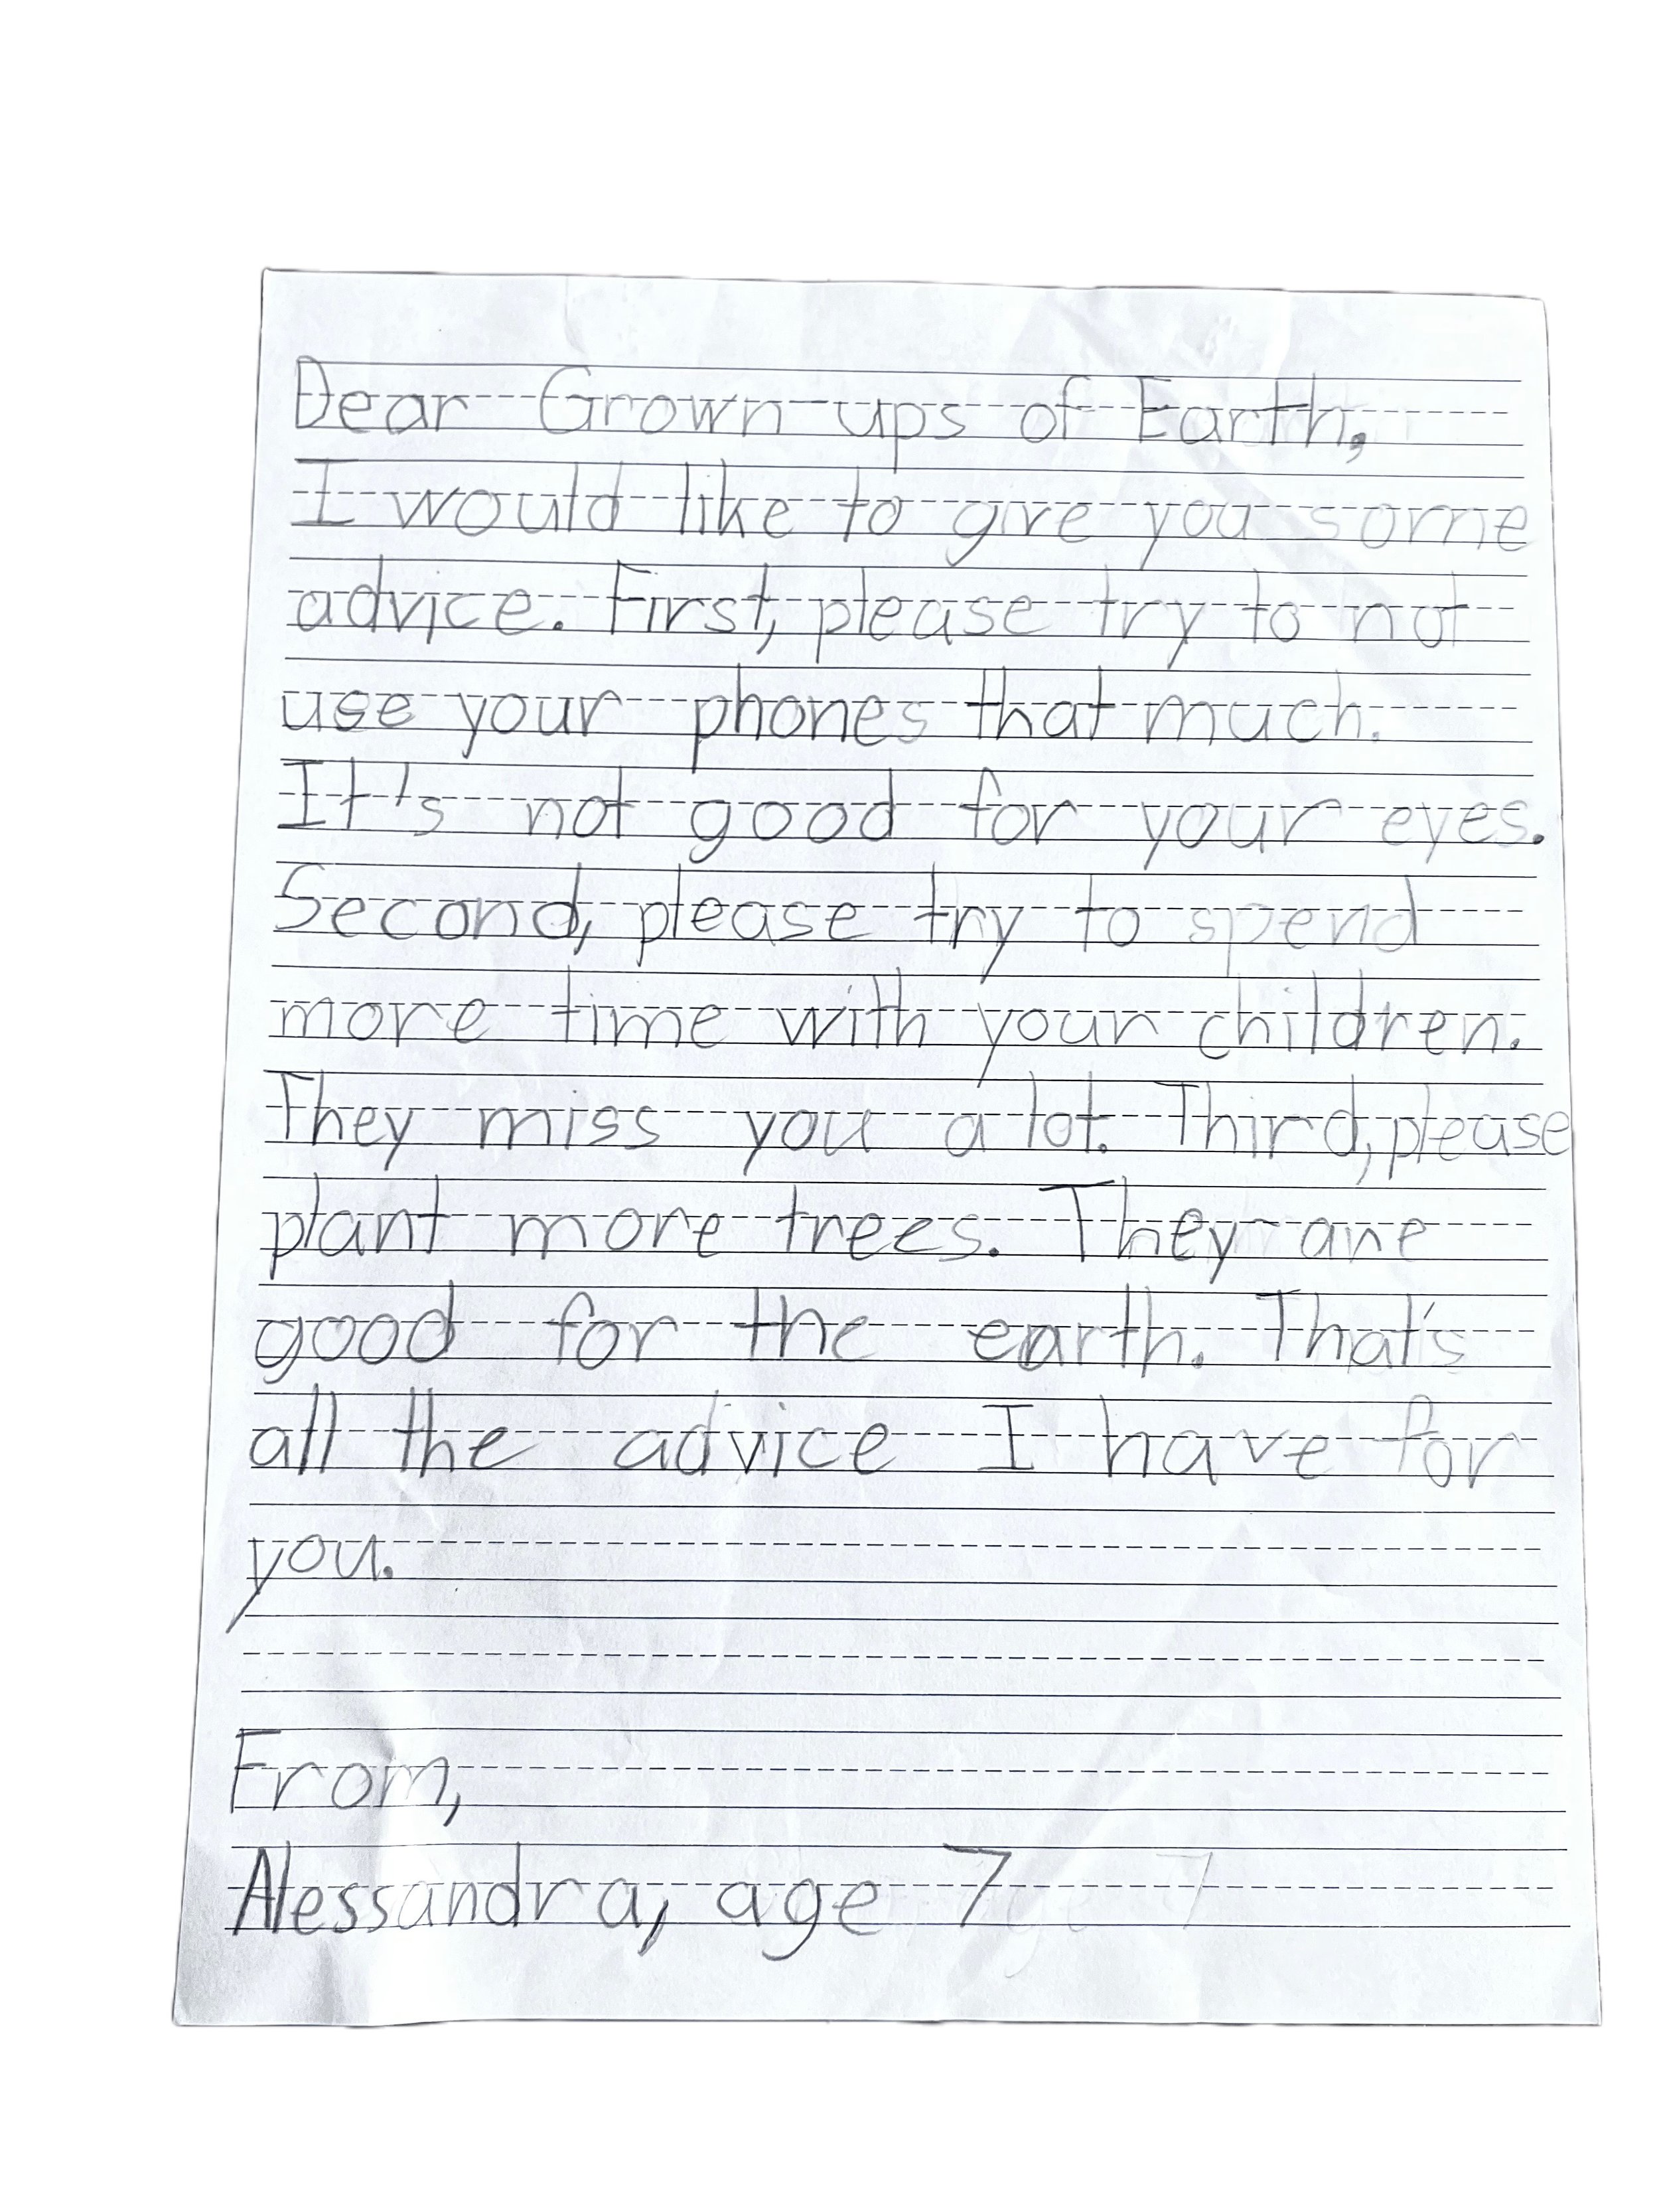 Dear Grown-ups of Earth,
I would like to give you some
advice. First, please try to not
use your phones that much.
It's not good for your eyes.
Second, please try to spend
more time with your children.
They miss you a lot. Third, please
plant more trees. They are
good for the earth. That's
all the advice I have for
you.
From,
Alessandra, age 7